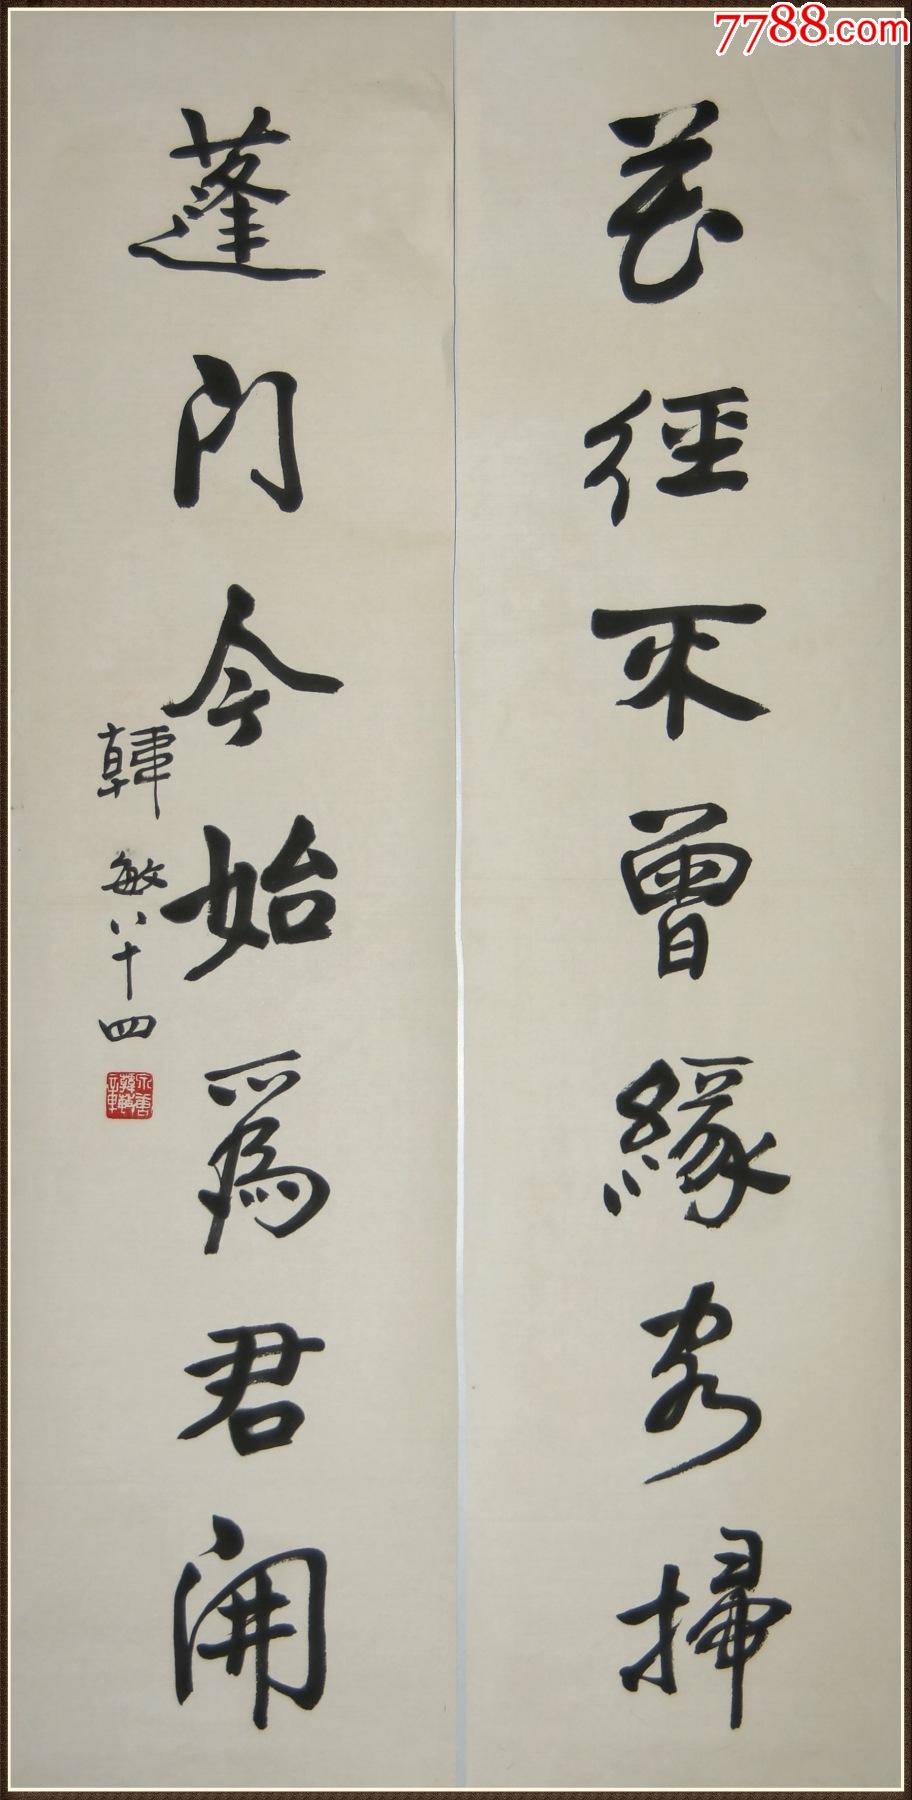 7788.com
花徑不曾緣客掃
蓬門今始爲君開
韓敏八十四